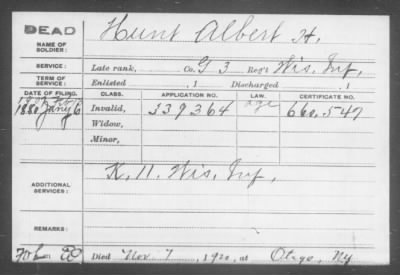 DEAD
NAME OF SOLDIER: Hunt Albert H.
SERVICE: Late rank, Co. G 3 Reg't Wis. Inf.
TERM OF SERVICE: Enlisted , 1 Discharged , 1
DATE OF FILING. CLASS. APPLICATION NO. LAW. CERTIFICATE NO.
1880 Jany 6 Invalid, 339364 age 660.547
Widow,
Minor,
ADDITIONAL SERVICES: K. 11. Wis. Inf.
REMARKS:
Died Nov. 7, 1920, at Otego, Ny